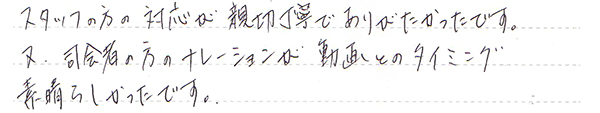 スタッフの方の対応が親切丁寧でありがたかったです。
又、司会者の方のナレーションが動画とのタイミング
素晴らしかったです。